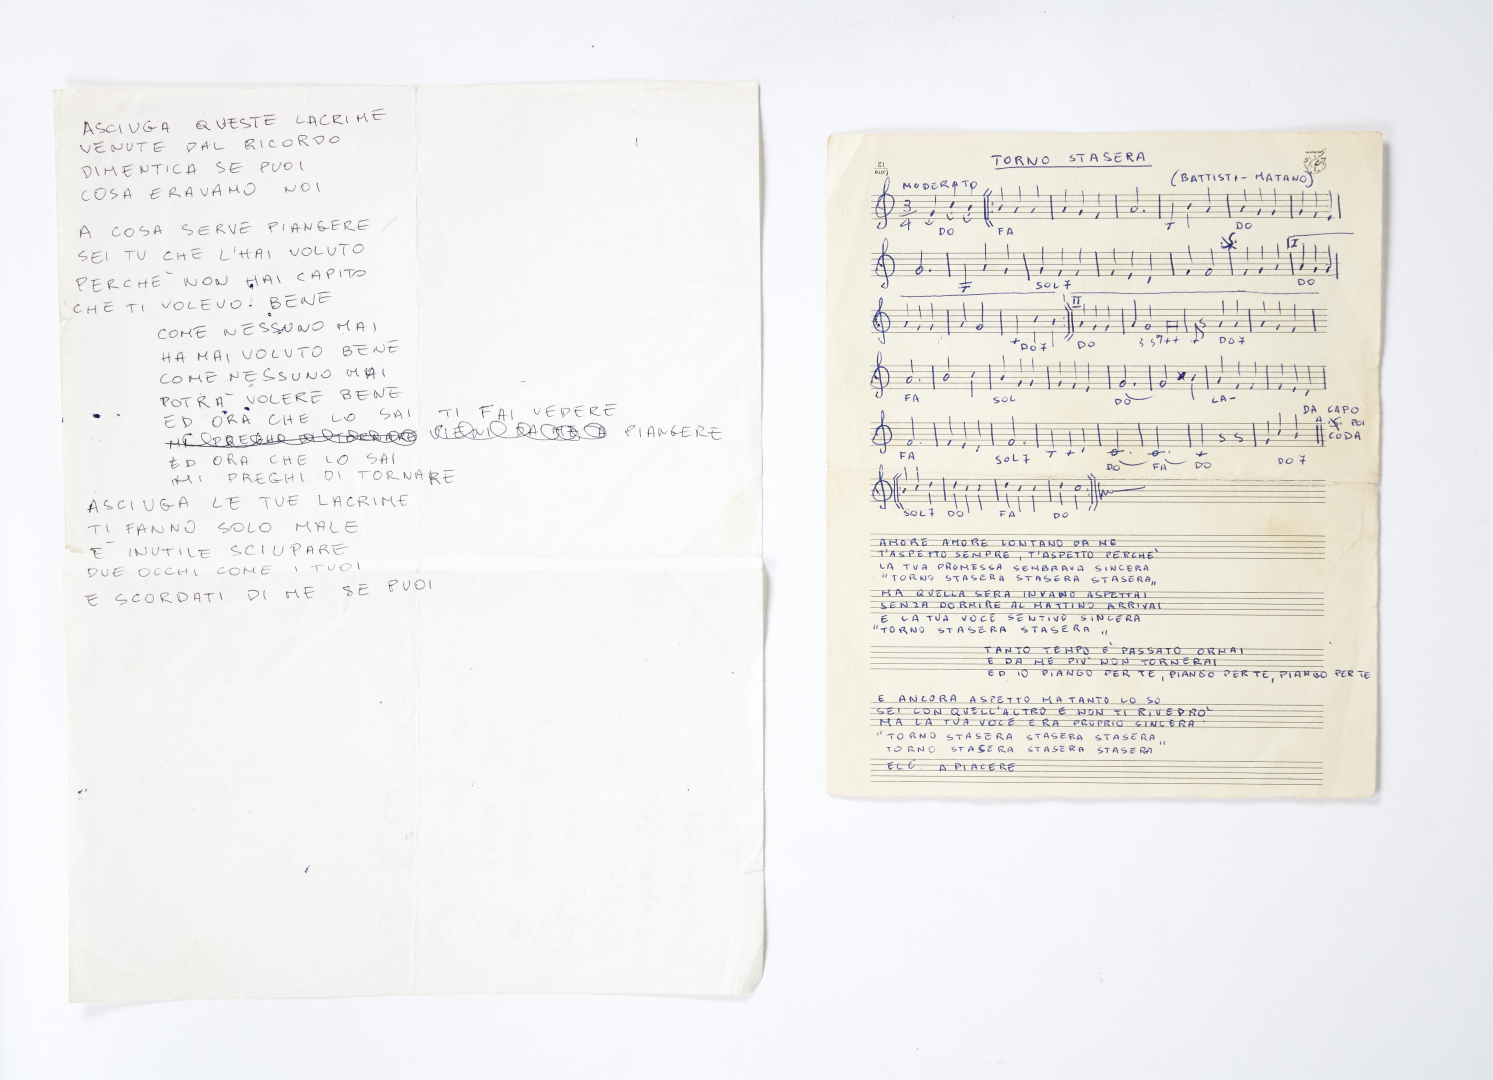 ASCIUGA QUESTE LACRIME
VENUTE DAL RICORDO
DIMENTICA SE PUOI
COSA ERAVAMO NOI
A COSA SERVE PIANGERE
SEI TU CHE L'HAI VOLUTO
PERCHE` NON HAI CAPITO
CHE TI VOLEVO BENE
COME NESSUNO MAI
HA MAI VOLUTO BENE
COME NESSUNO MAI
POTRA` VOLERE BENE
ED ORA CHE LO SAI TI FAI VEDERE
PIANGERE
ED ORA CHE LO SAI
MI PREGHI DI TORNARE
ASCIUGA LE TUE LACRIME
TI FANNO SOLO MALE
E` INUTILE SCIUPARE
DUE OCCHI COME I TUOI
E SCORDATI DI ME SE PUOI
Extra
12
TORNO STASERA
(BATTISTI-MATANO)
MODERATO
3
4
DO FA T DO
I
T SOL7 DO
II
DO7 DO DO7
FA SOL DO LA-
DA CAPO
A POI
CODA
FA SOL7 T DO FA DO DO7
SOL7 DO FA DO
AMORE AMORE LONTANO DA ME
T'ASPETTO SEMPRE, T'ASPETTO PERCHE`
LA TUA PROMESSA SEMBRAVA SINCERA
"TORNO STASERA STASERA STASERA"
MA QUELLA SERA INVANO ASPETTAI
SENZA DORMIRE AL MATTINO ARRIVAI
E LA TUA VOCE SENTIVO SINCERA
"TORNO STASERA STASERA"
TANTO TEMPO E` PASSATO ORMAI
E DA ME PIU` NON TORNERAI
ED IO PIANGO PER TE, PIANGO PER TE, PIANGO PER TE
E ANCORA ASPETTO MA TANTO LO SO
SEI CON QUELL'ALTRO E NON TI RIVEDRO`
MA LA TUA VOCE ERA PROPRIO SINCERA
"TORNO STASERA STASERA STASERA
TORNO STASERA STASERA STASERA"
ECC A PIACERE